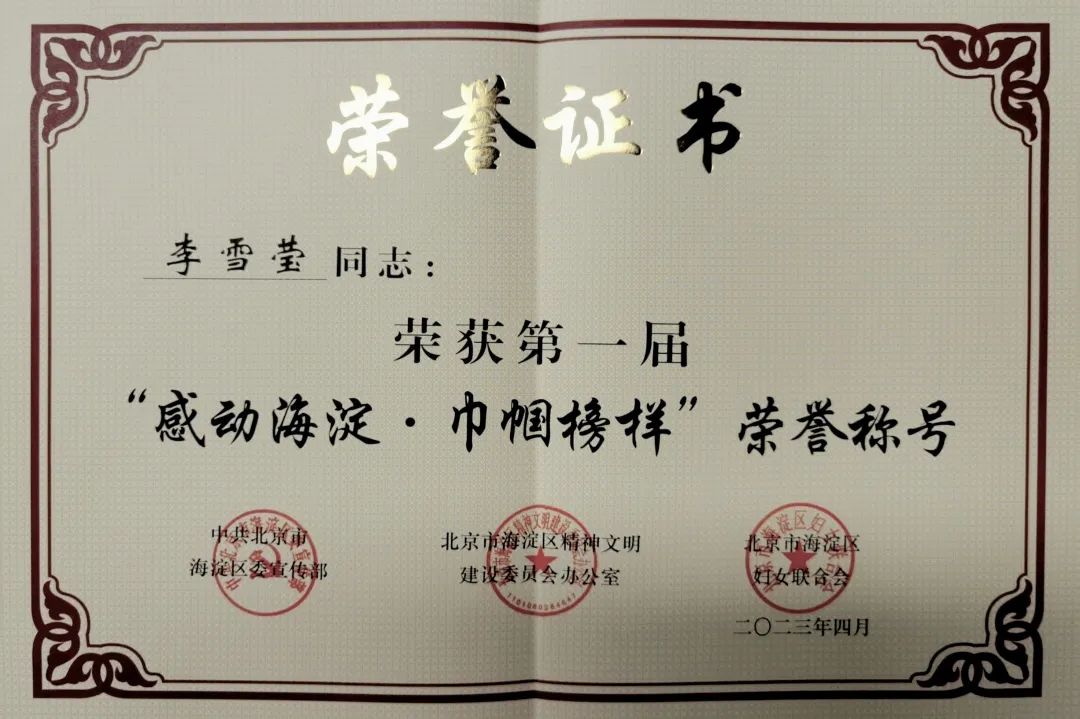 荣誉证书
李雪莹同志：
荣获第一届
“感动海淀·巾帼榜样”荣誉称号
中共北京市
海淀区委宣传部
北京市海淀区精神文明
建设委员会办公室
北京市海淀区
妇女联合会
二〇二三年四月